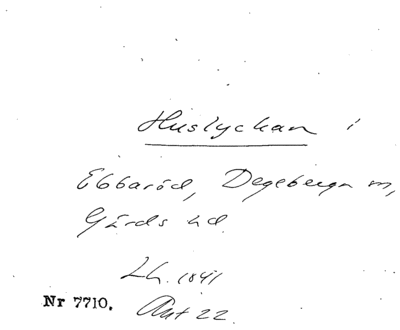 Huslyckan i
Ebbaröd, Degeberga sn,
Gärds hd.
Lh. 1841
Nr 7710. Akt 22.